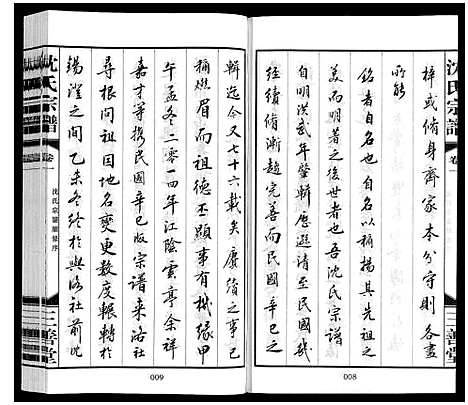 沈氏宗譜
卷一
三善堂
梓或脩身齊家本分守則各盡
所能
銘者自名也自名以稱揚其先祖之
美而明著之後世者也吾沈氏宗譜
自明洪武年肇輯歷遜清至民國幾
經續脩漸趨完善而民國辛巳
008
輯迄今又七十六載矣賡續之事已
稱燃眉而祖德丕顯事有機緣甲
午孟冬二零一四年江陰雲亭余祥
嘉才等携民國辛巳版宗譜来洛社
尋根問祖因地名變更数度輾轉於
錫澄之間乙未冬終於與洛社前沈
009
沈氏宗譜
卷一
沈氏宗譜續脩序
三善堂